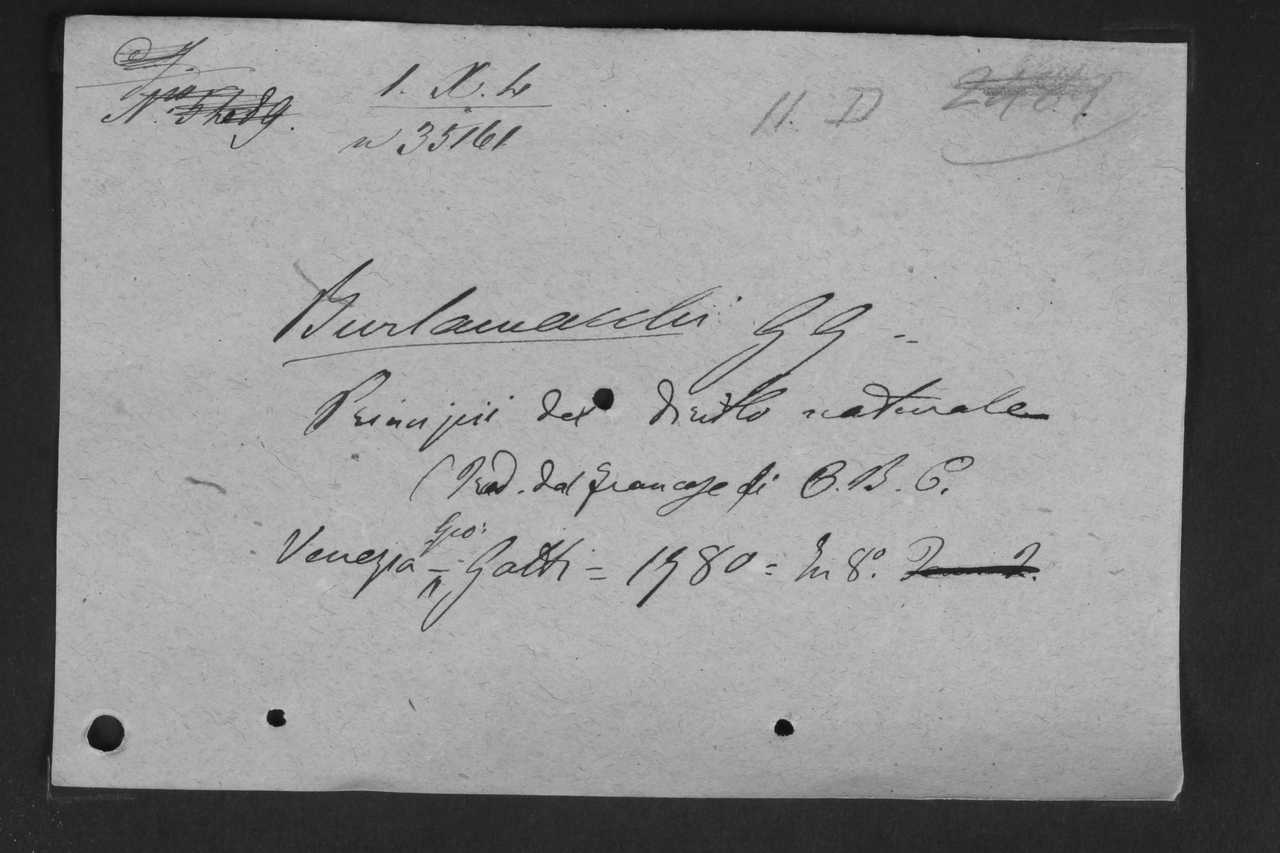 1. X. 4
n 35161
11. D
Burlamacchi G G =
Principii del diritto naturale
(Trad. dal francese di C. B. C.
Venezia = Gio: Gatti = 1780 = In 8°.